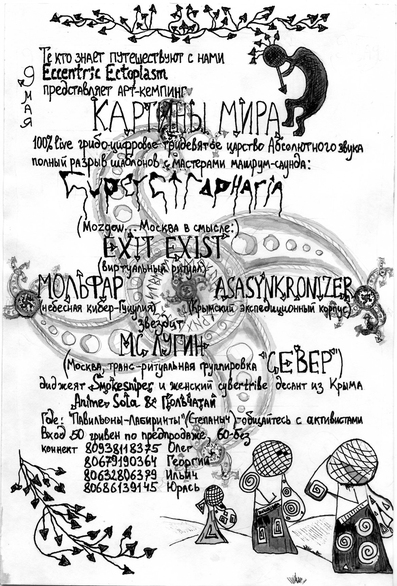 Те кто знает путешествуют с нами
Eccentric Ectoplasm
9 мая
представляет арт-кемпинг
КАРТИНЫ МИРА
100% live грибо-цифровое тридевятое царство Абсолютного звука
полный разрыв шаблонов с мастерами машрум-саунда:
(Mozgow... Москва в смысле:)
EXIT EXIST
(виртуальный ритуал)
МОЛЬФАР
(небесная кибер-Гуцулия)
ASASYNKRONIZER
(Крымский экспедиционный корпус)
звездит
МС ЛУГИН
(Москва, транс-ритуальная группировка "СЕВЕР")
диджеят Smokesniper и женский cybertribe десант из Крыма
Anime Sola & Гюльчатай
Где: "Павильоны-Лабиринты" (Степаныч) общайтесь с активистами
Вход 50 гривен по предпродаже, 60-без
коннект 80938118375 Олег
80679190364 Георгий
80632806379 Ильич
80686139145 Юрась